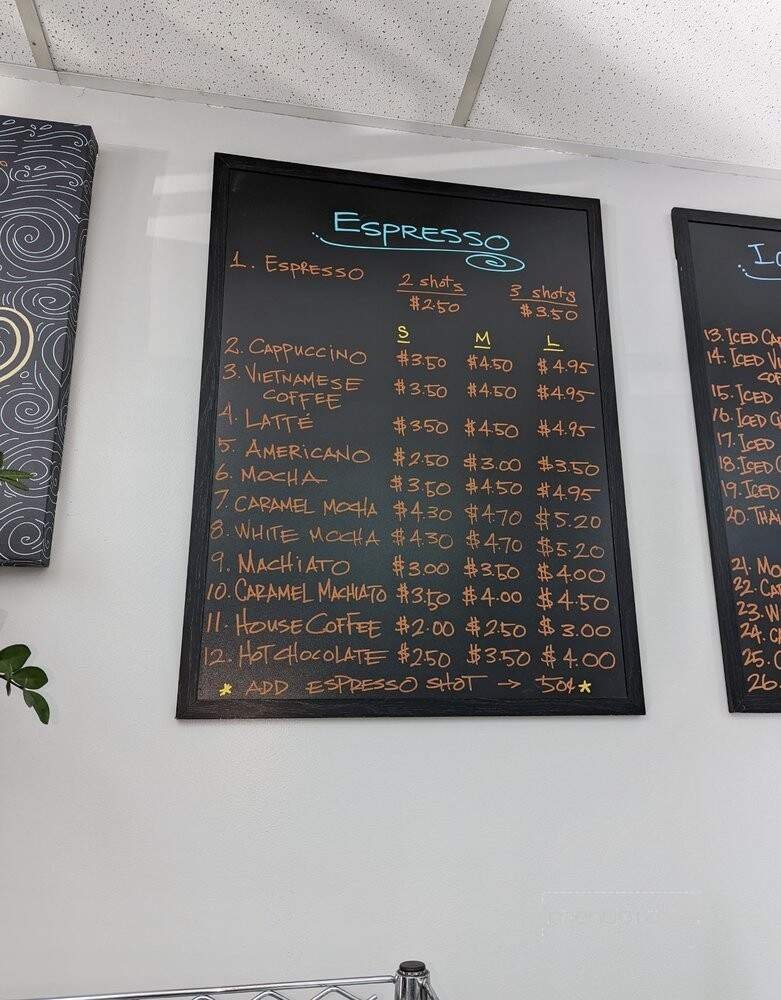 Espresso
1. Espresso 2 shots 3 shots
$2.50 $3.50
S M L
2. Cappuccino $3.50 $4.50 $4.95
3. Vietnamese $3.50 $4.50 $4.95
Coffee
4. Latte $3.50 $4.50 $4.95
5. Americano $2.50 $3.00 $3.50
6. Mocha $3.50 $4.50 $4.95
7. Caramel Mocha $4.30 $4.70 $5.20
8. White Mocha $4.30 $4.70 $5.20
9. Machiato $3.00 $3.50 $4.00
10. Caramel Machiato $3.50 $4.00 $4.50
11. House Coffee $2.00 $2.50 $3.00
12. Hot Chocolate $2.50 $3.50 $4.00
* Add espresso shot → 50¢ *
13. Iced
14. Iced
15. Iced
16. Iced
17. Iced
18. Iced
19. Iced
20.
21.
22.
23.
24.
25.
26.